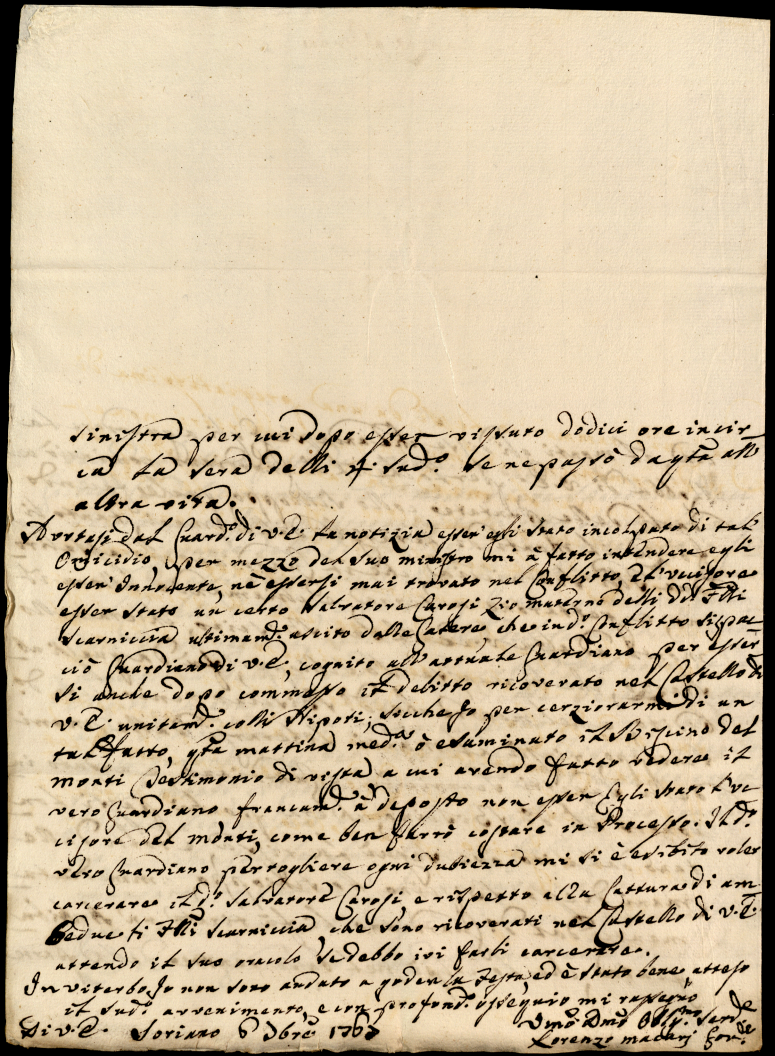 sinistra per cui dopo esser vissuto dodici ore incir-
ca la sera delli 4 sud.o se ne passò da q.ta all'
altra vita.
Portasi dal Guard.o di V.E. la notizia esser egli stato incolpato di tal'
Omicidio, per mezzo del suo ministro mi à fatto intendere egli
esser Innocente, nè essersi mai trovato nel Conflitto, e l'uccisore
esser stato un certo Salvatore Carosi Zio materno delli d.i F.lli
Scarniccia ultimam.e uscito dalle Carceri, che in d.o Conflitto si spac-
ciò Guardiano di V.E., cognito all'attuale Guardiano per esser-
si anche dopo commesso il delitto ricoverato nel Castello di
V.E. unitam.e colli Nipoti; sicche Io per cerziorarmi di un
tal fatto, q.ta mattina med.a ò esaminato il Biscino del
monti Testimonio di vista a cui avendo fatto vedere il
vero Guardiano francam.e à deposto non esser Egli stato l'uc-
cisore del monti, come ben farrò costare in Processo. Il d.o
vero Guardiano per togliere ogni dubiezza mi si è esibito voler
carcerare il d.o Salvatore Carosi e rispetto alla Cattura di am-
bedue li F.lli Scarniccia che sono ricoverati nel Castello di V.E.
attendo il suo oracolo se debbo ivi farli carcerare.
In Viterbo Io non sono andato a goder la festa, ed è stato bene atteso
il sud.o avvenimento, e con profond.o ossequio mi rassegno
Di V.E. Soriano 6 Obre 1767
Umo Dmo Obblmo Serd.e
Lorenzo macarj Gov.e